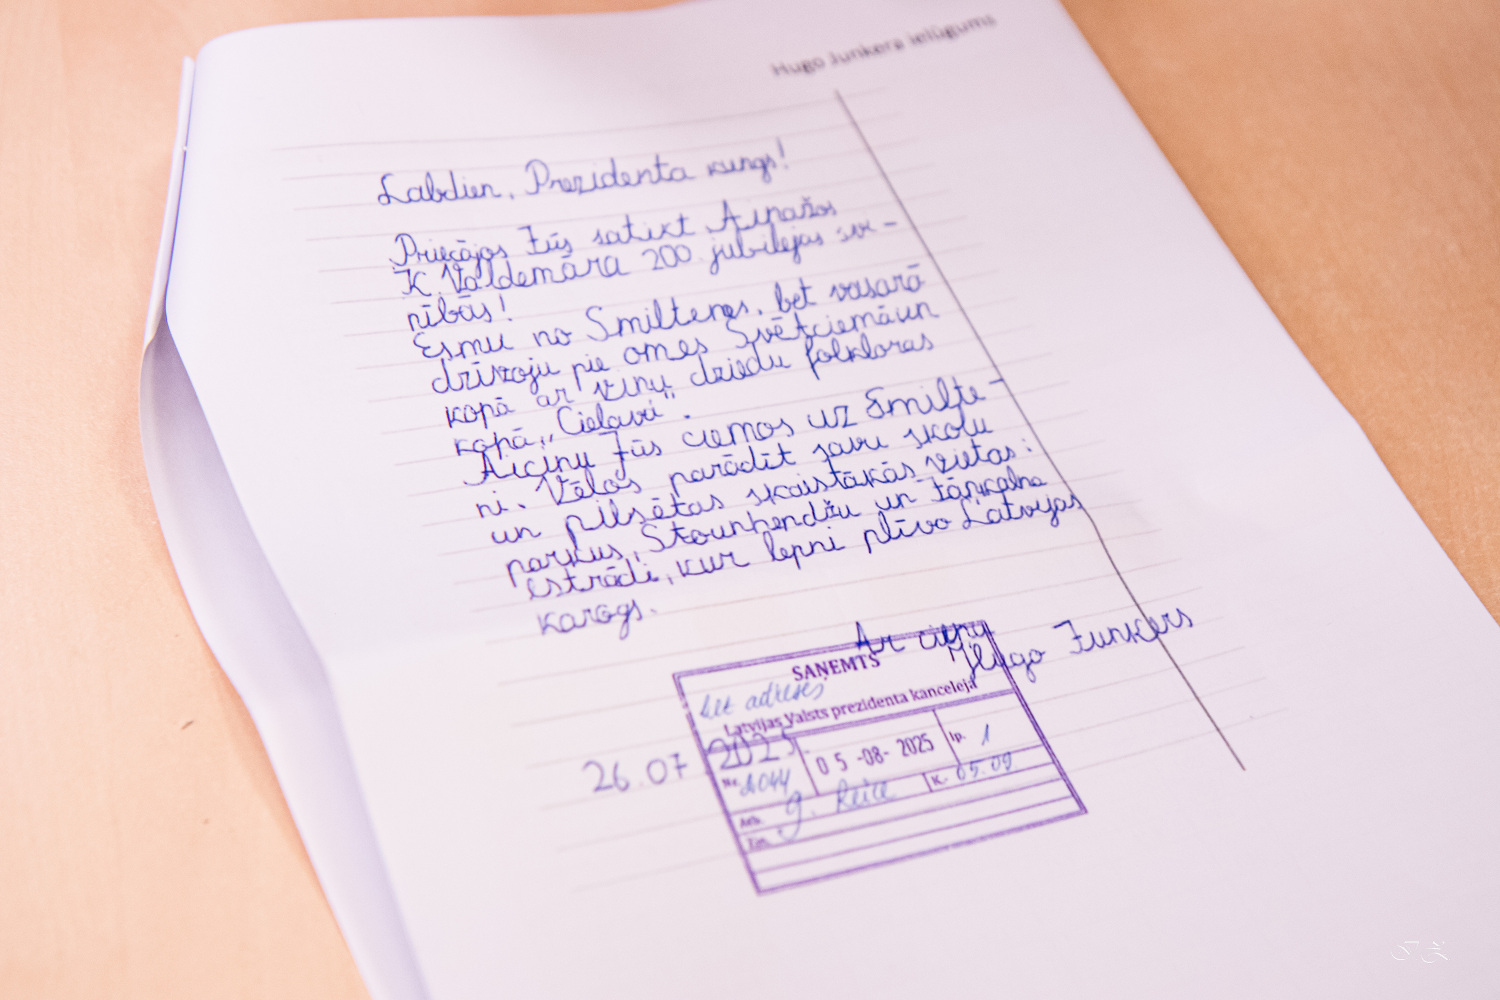 Hugo Junkera ielūgums
Labdien, Prezidenta kungs!
Priecājos Jūs satikt Ainažos
K. Valdemāra 200. jubilejas svi-
nībās!
Esmu no Smiltenes, bet vasarā
dzīvoju pie omes Svētciemā un
kopā ar viņu dziedu folkloras
kopā „Cielavi".
Aicinu Jūs ciemos uz Smilte-
ni. Vēlos parādīt savu skolu
un pilsētas skaistākās vietas:
parkus, Stounhendžu un Jāņkalna
estrādi, kur lepni plīvo Latvijas
karogs.
Ar cieņu
Hugo Junkers
SAŅEMTS
bez adreses
Latvijas Valsts prezidenta kancelejā
26.07 2025
05 -08- 2025
lp. 1
Nr.
K. 05.09
Atb.